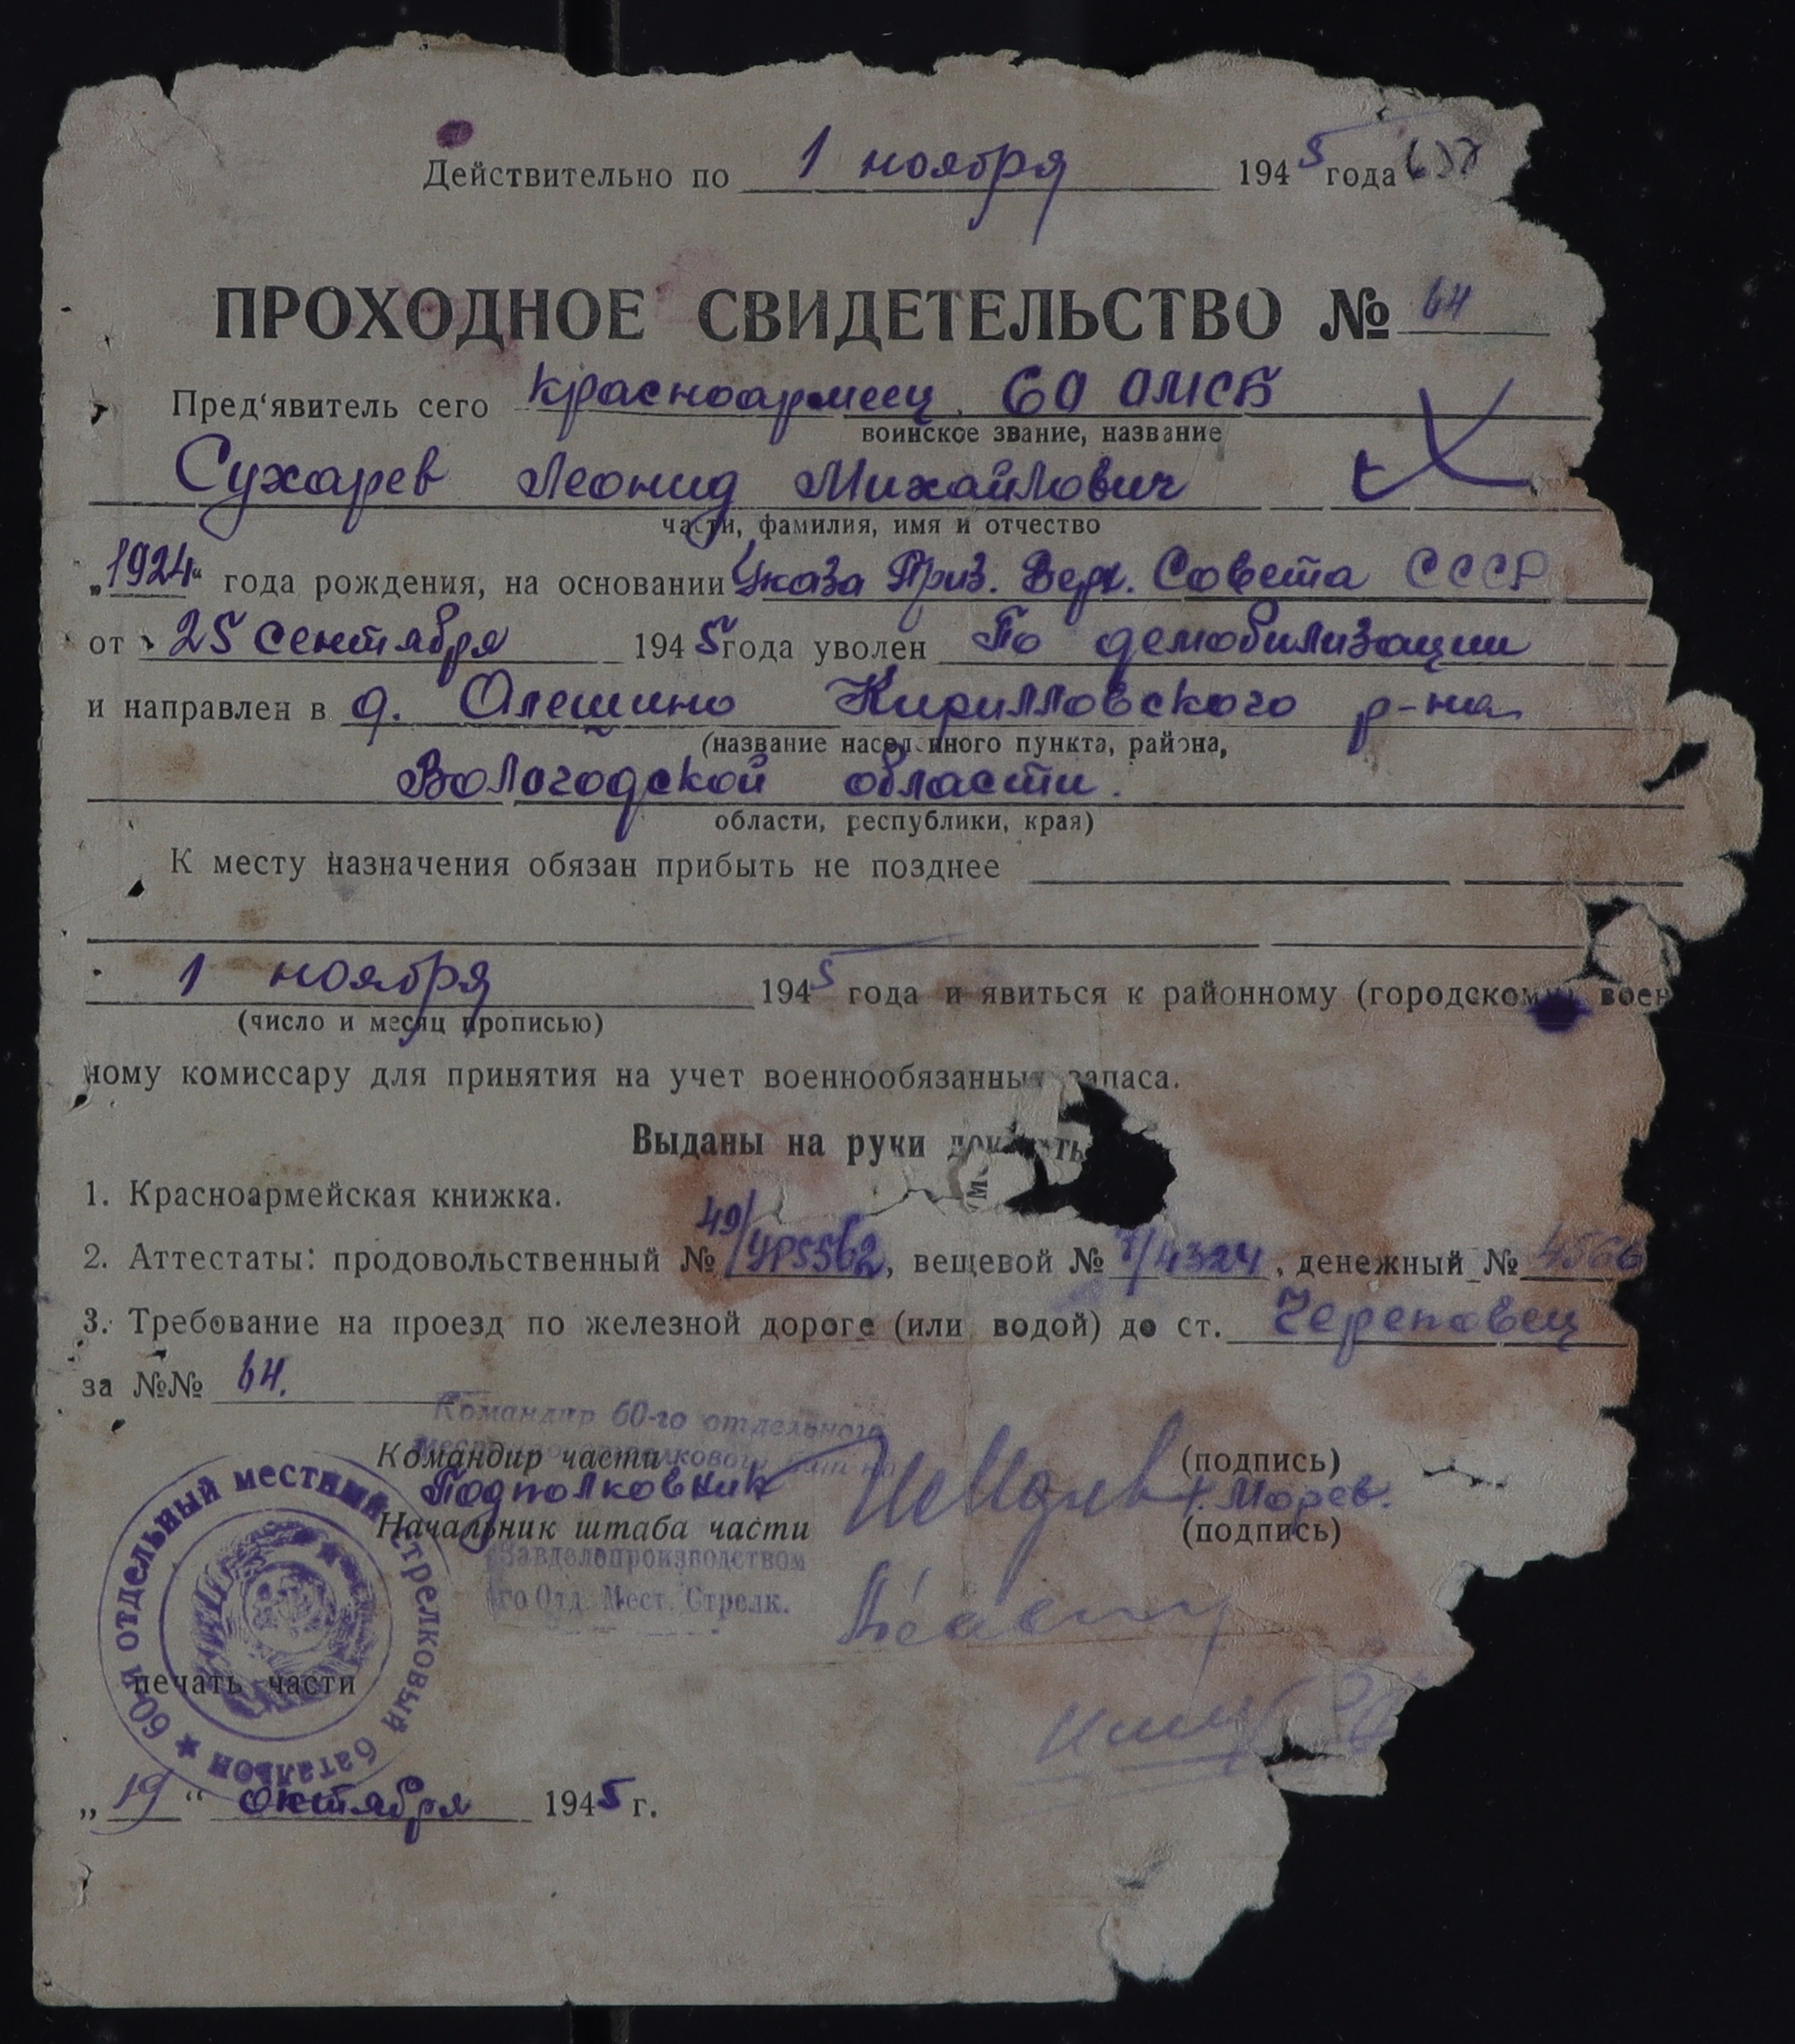 Действительно по 1 ноября 1945 года
ПРОХОДНОЕ СВИДЕТЕЛЬСТВО № 64
Пред‘явитель сего красноармеец 60 ОМСБ
воинское звание, название
Сухарев Леонид Михайлович
части, фамилия, имя и отчество
„1924“ года рождения, на основании Указа През. Верх. Совета СССР
от 25 сентября 1945 года уволен По демобилизации
и направлен в д. Олешино Кирилловского р-на
(название населенного пункта, района,
Вологодской области.
области, республики, края)
К месту назначения обязан прибыть не позднее
1 ноября 1945 года и явиться к районному (городскому) воен
(число и месяц прописью)
ному комиссару для принятия на учет военнообязанных запаса.
Выданы на руки
1. Красноармейская книжка.
2. Аттестаты: продовольственный № 49/ , вещевой № /4324, денежный № 4566
3. Требование на проезд по железной дороге (или водой) до ст. Череповец
за №№ 64.
Командир 60-го отдельного
местного стрелкового
Командир части (подпись)
Подполковник Морев.
Начальник штаба части (подпись)
Завделопроизводством
го Отд. Мест. Стрелк.
60-й отдельный местный стрелковый батальон
печать части
„19“ октября 1945 г.